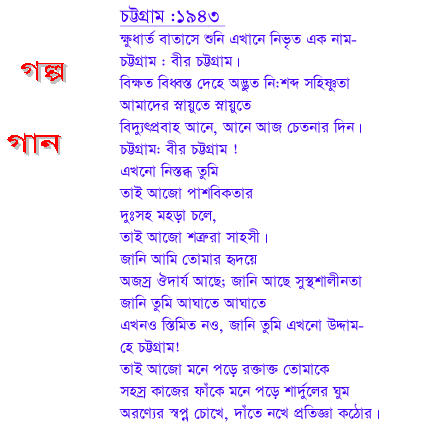 চট্টগ্রাম :১৯৪৩
ক্ষুধার্ত বাতাসে শুনি এখানে নিভৃত এক নাম-
চট্টগ্রাম : বীর চট্টগ্রাম।
বিক্ষত বিধ্বস্ত দেহে অদ্ভুত নি:শব্দ সহিষ্ণুতা
আমাদের স্নায়ুতে স্নায়ুতে
বিদ্যুৎপ্রবাহ আনে, আনে আজ চেতনার দিন।
চট্টগ্রাম: বীর চট্টগ্রাম !
এখনো নিস্তব্ধ তুমি
তাই আজো পাশবিকতার
দুঃসহ মহড়া চলে,
তাই আজো শত্রুরা সাহসী।
জানি আমি তোমার হৃদয়ে
অজস্র ঔদার্য আছে; জানি আছে সুস্থশালীনতা
জানি তুমি আঘাতে আঘাতে
এখনও স্তিমিত নও, জানি তুমি এখনো উদ্দাম-
হে চট্টগ্রাম!
তাই আজো মনে পড়ে রক্তাক্ত তোমাকে
সহস্র কাজের ফাঁকে মনে পড়ে শার্দুলের ঘুম
অরণ্যের স্বপ্ন চোখে, দাঁতে নখে প্রতিজ্ঞা কঠোর।
গল্প
গান